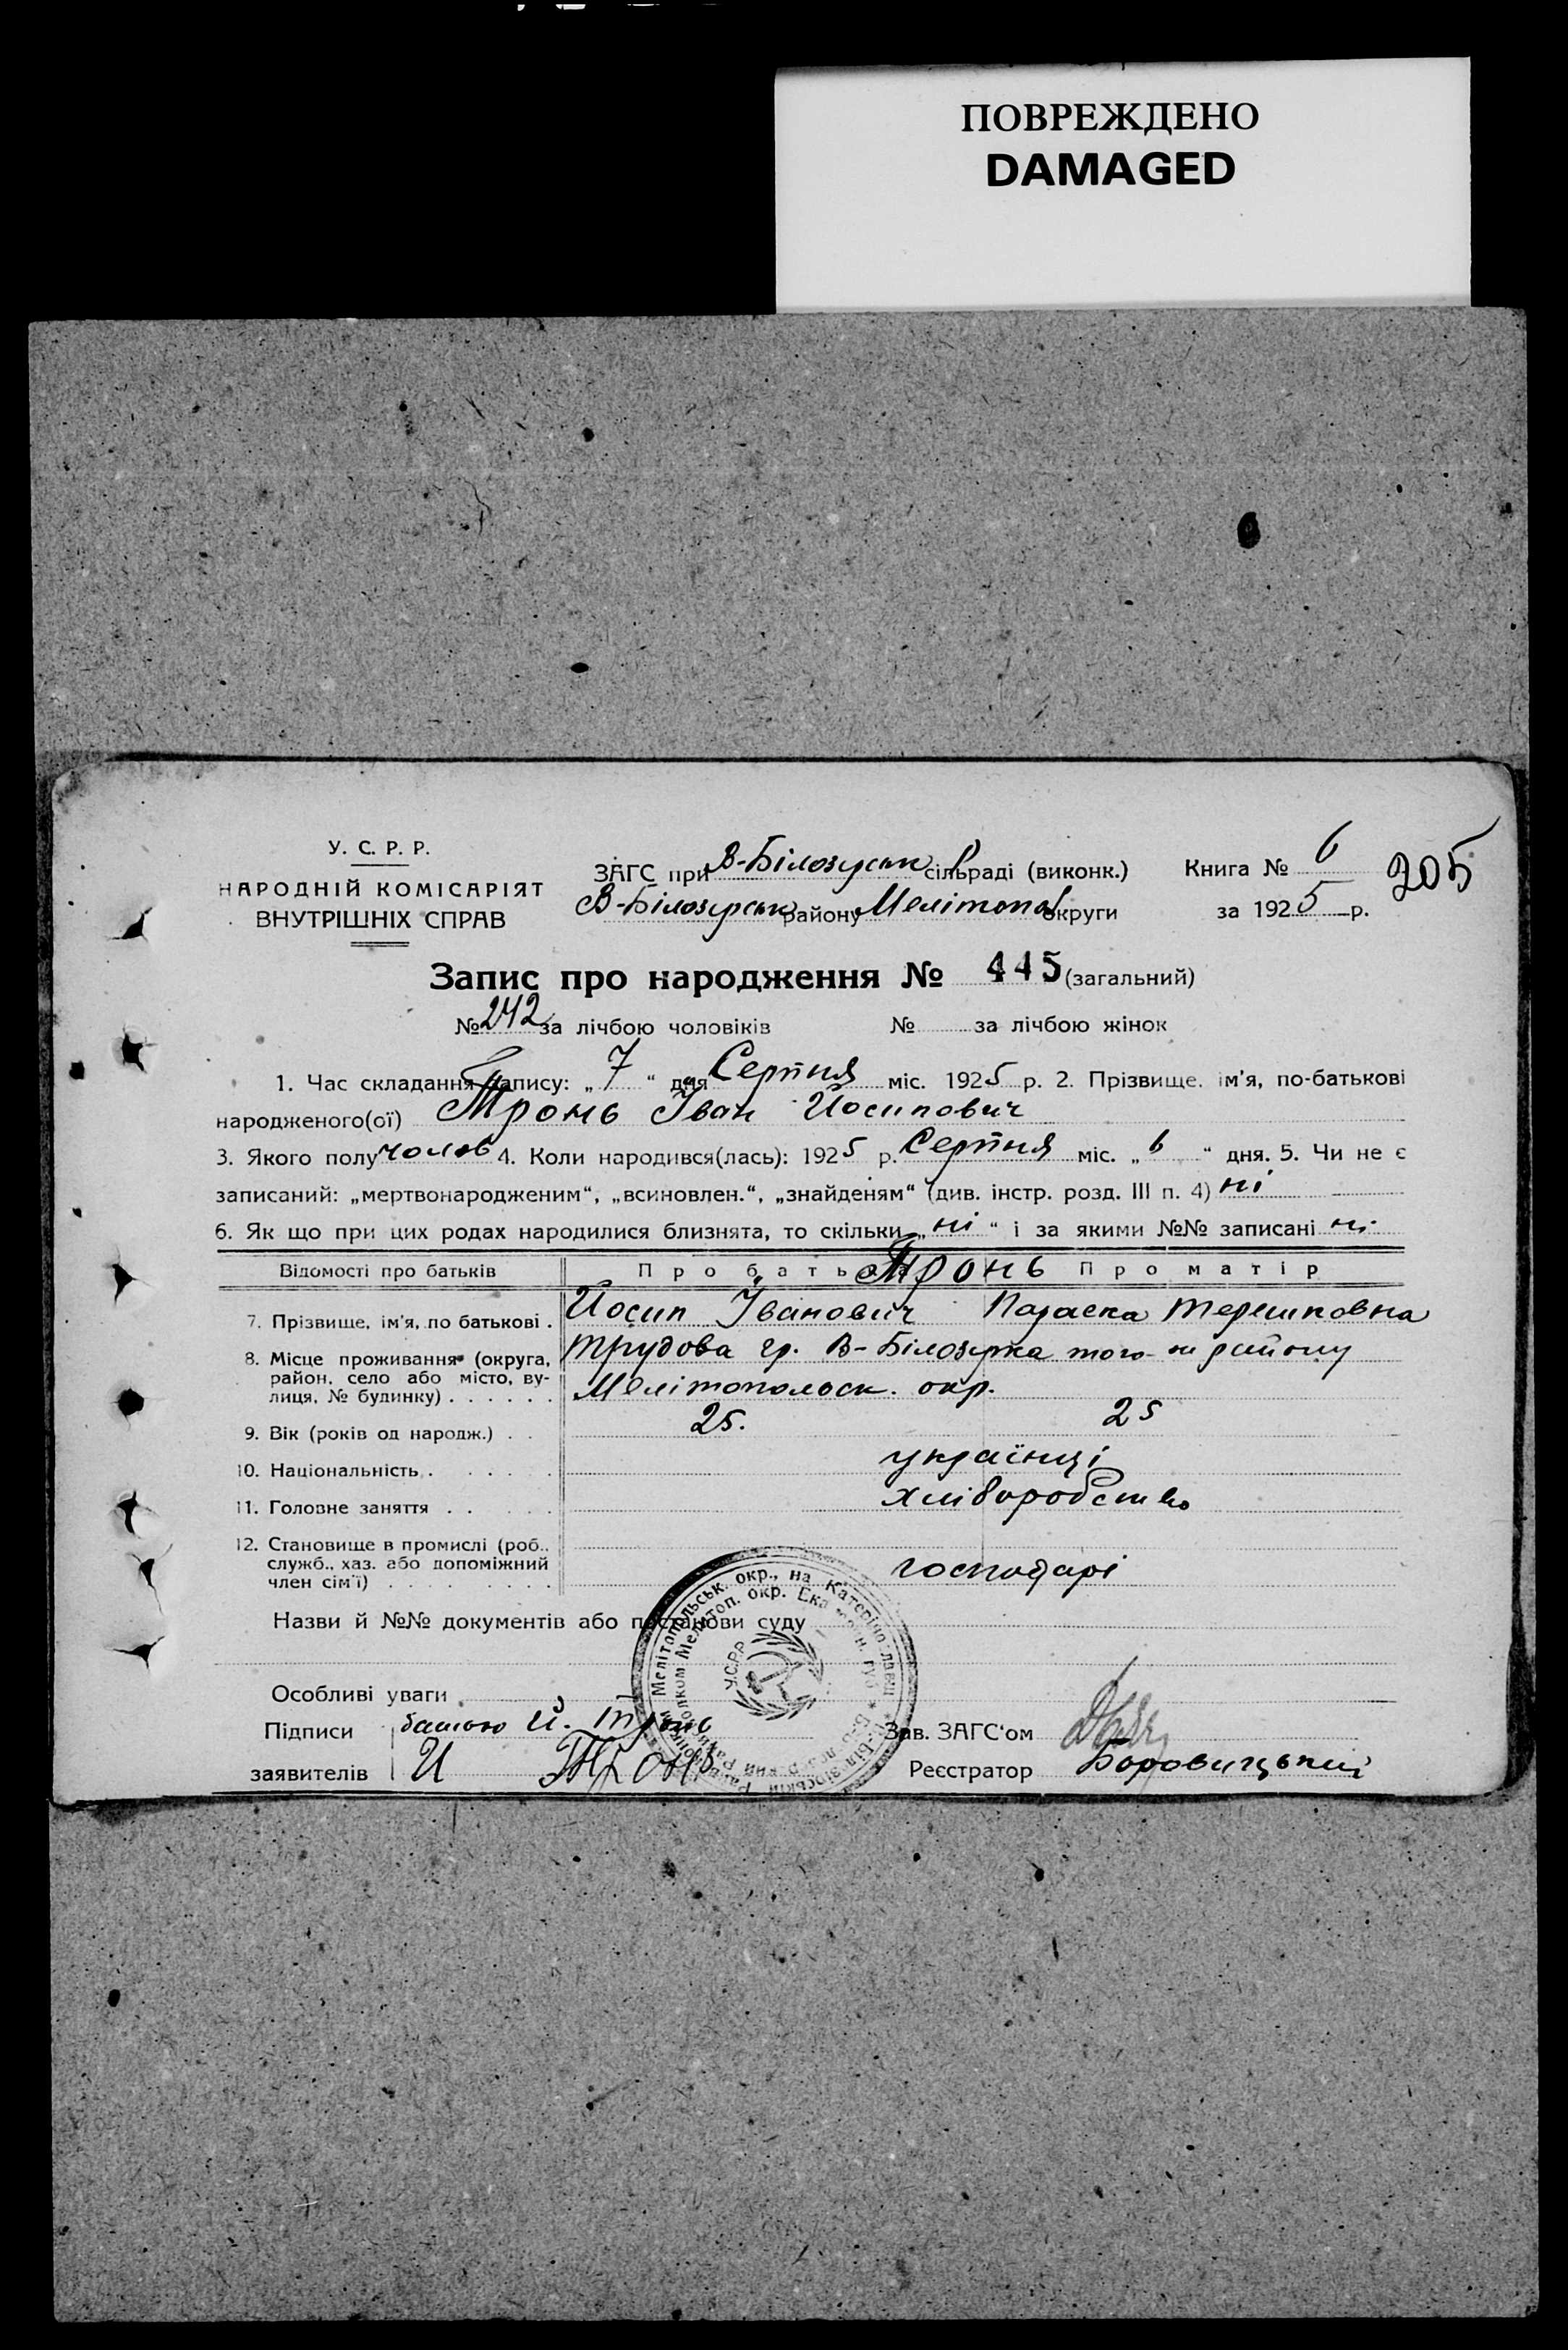 ПОВРЕЖДЕНО
DAMAGED
У. С. Р. Р.
НАРОДНІЙ КОМІСАРІЯТ
ВНУТРІШНІХ СПРАВ
ЗАГС при В-Білозерськ сільраді (виконк.)
В-Білозерськ району Мелітопол округи
Книга № 6
205
за 1925 р.
Запис про народження № 445 (загальний)
№ 242 за лічбою чоловіків № за лічбою жінок
1. Час складання запису: „ 7 “ дня Серпня міс. 1925 р. 2. Прізвище, ім'я, по-батькові
народженого(ої) Тронь Іван Йосипович
3. Якого полу чолов 4. Коли народився(лась): 1925 р. Серпня міс. „ 6 “ дня. 5. Чи не є
записаний: „мертвонародженим“, „всиновлен.“, „знайденям“ (див. інстр. розд. III п. 4) ні
6. Як що при цих родах народилися близнята, то скільки „ ні “ і за якими №№ записані ні
Відомості про батьків Про батька Тронь Про матір
7. Прізвище, ім'я, по батькові . Йосип Іванович Параска Терешковна
8. Місце проживання (округа, район, село або місто, вулиця, № будинку) . . . . . . Трудова гр. В-Білозерка того-ж району
Мелітопольськ. окр.
9. Вік (років од народж.) . . 25. 25
10. Національність . . . . . . українці
11. Головне заняття . . . . . хліборобство
12. Становище в промислі (роб.. служб., хаз. або допоміжний член сім'ї) . . . . . . . . господарі
Назви й №№ документів або постанови суду
Мелітопольськ. окр., на Катеринославщ
Мелитоп. окр. Екатерин. губ.
У.С.Р.Р.
Особливі уваги
Підписи батько Й. Тронь Зав. ЗАГС'ом
заявителів И Тронь Реєстратор Боровицький